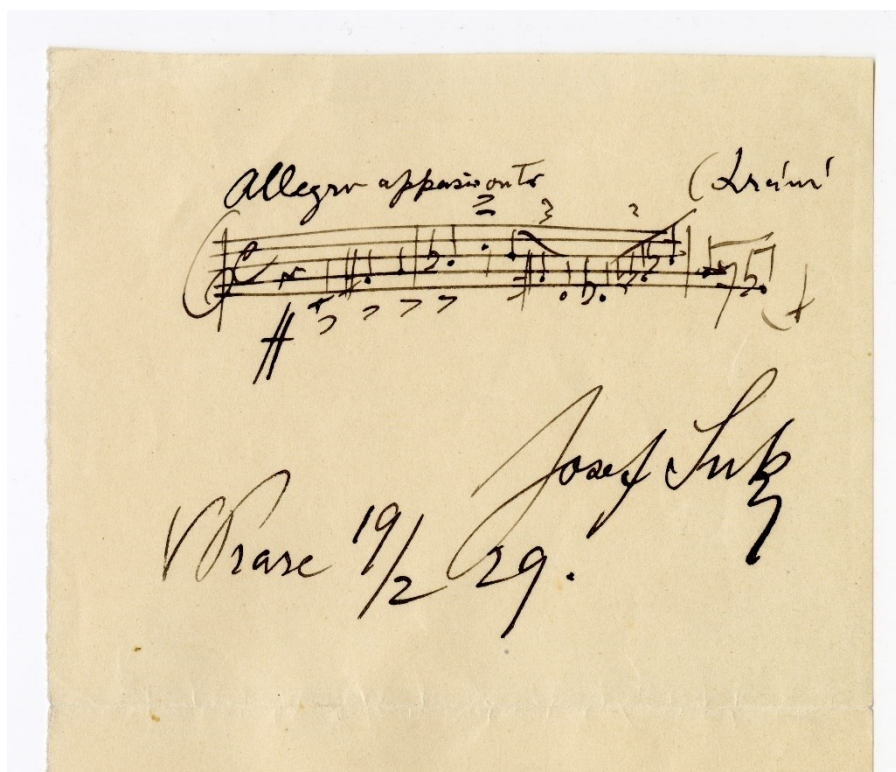 Allegro appasionato (Zrání
3 3
Josef Suk
V Praze 19/2 29.